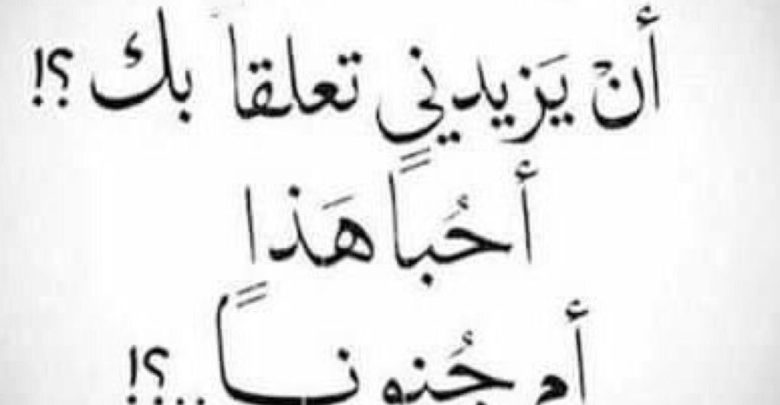 أنْ يَزيدني تعلقاً بك ؟!
أحُباً هَذا
أم جُنوناً ..؟!